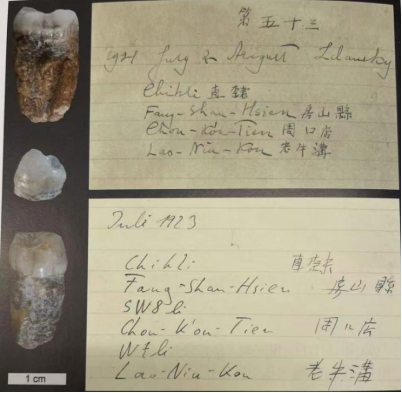 第五十三
1921 July & August Zdansky
Chihli 直隸
Fang-Shan-Hsien 房山縣
Chou-K'ou-Tien 周口店
Lao-Niu-Kou 老牛溝
Juli 1923
Chihli 直隸
Fang-Shan-Hsien 房山縣
SW 8 li
Chou-K'ou-Tien 周口店
W 7 li
Lao-Niu-Kou 老牛溝
1 cm